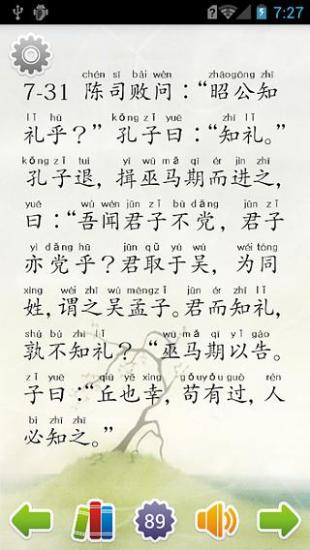 7:27
chén sī bài wèn zhāogōng zhī
7-31 陈司败问：“昭公知
lǐ hū kǒng zǐ yuē zhī lǐ
礼乎？”孔子曰：“知礼。”
kǒng zǐ tuì yī wū mǎ qī ér jìn zhī
孔子退，揖巫马期而进之，
yuē wú wén jūn zǐ bù dǎng jūn zǐ
曰：“吾闻君子不党，君子
yì dǎng hū jūn qǔ yú wú wéi tóng
亦党乎？君取于吴，为同
xìng wèi zhī wú mèng zǐ jūn ér zhī lǐ
姓，谓之吴孟子。君而知礼，
shú bù zhī lǐ wū mǎ qī yǐ gào
孰不知礼？“巫马期以告。
zǐ yuē qiū yě xìng gǒu yǒu guò rén
子曰：“丘也幸，苟有过，人
bì zhī zhī
必知之。”
89